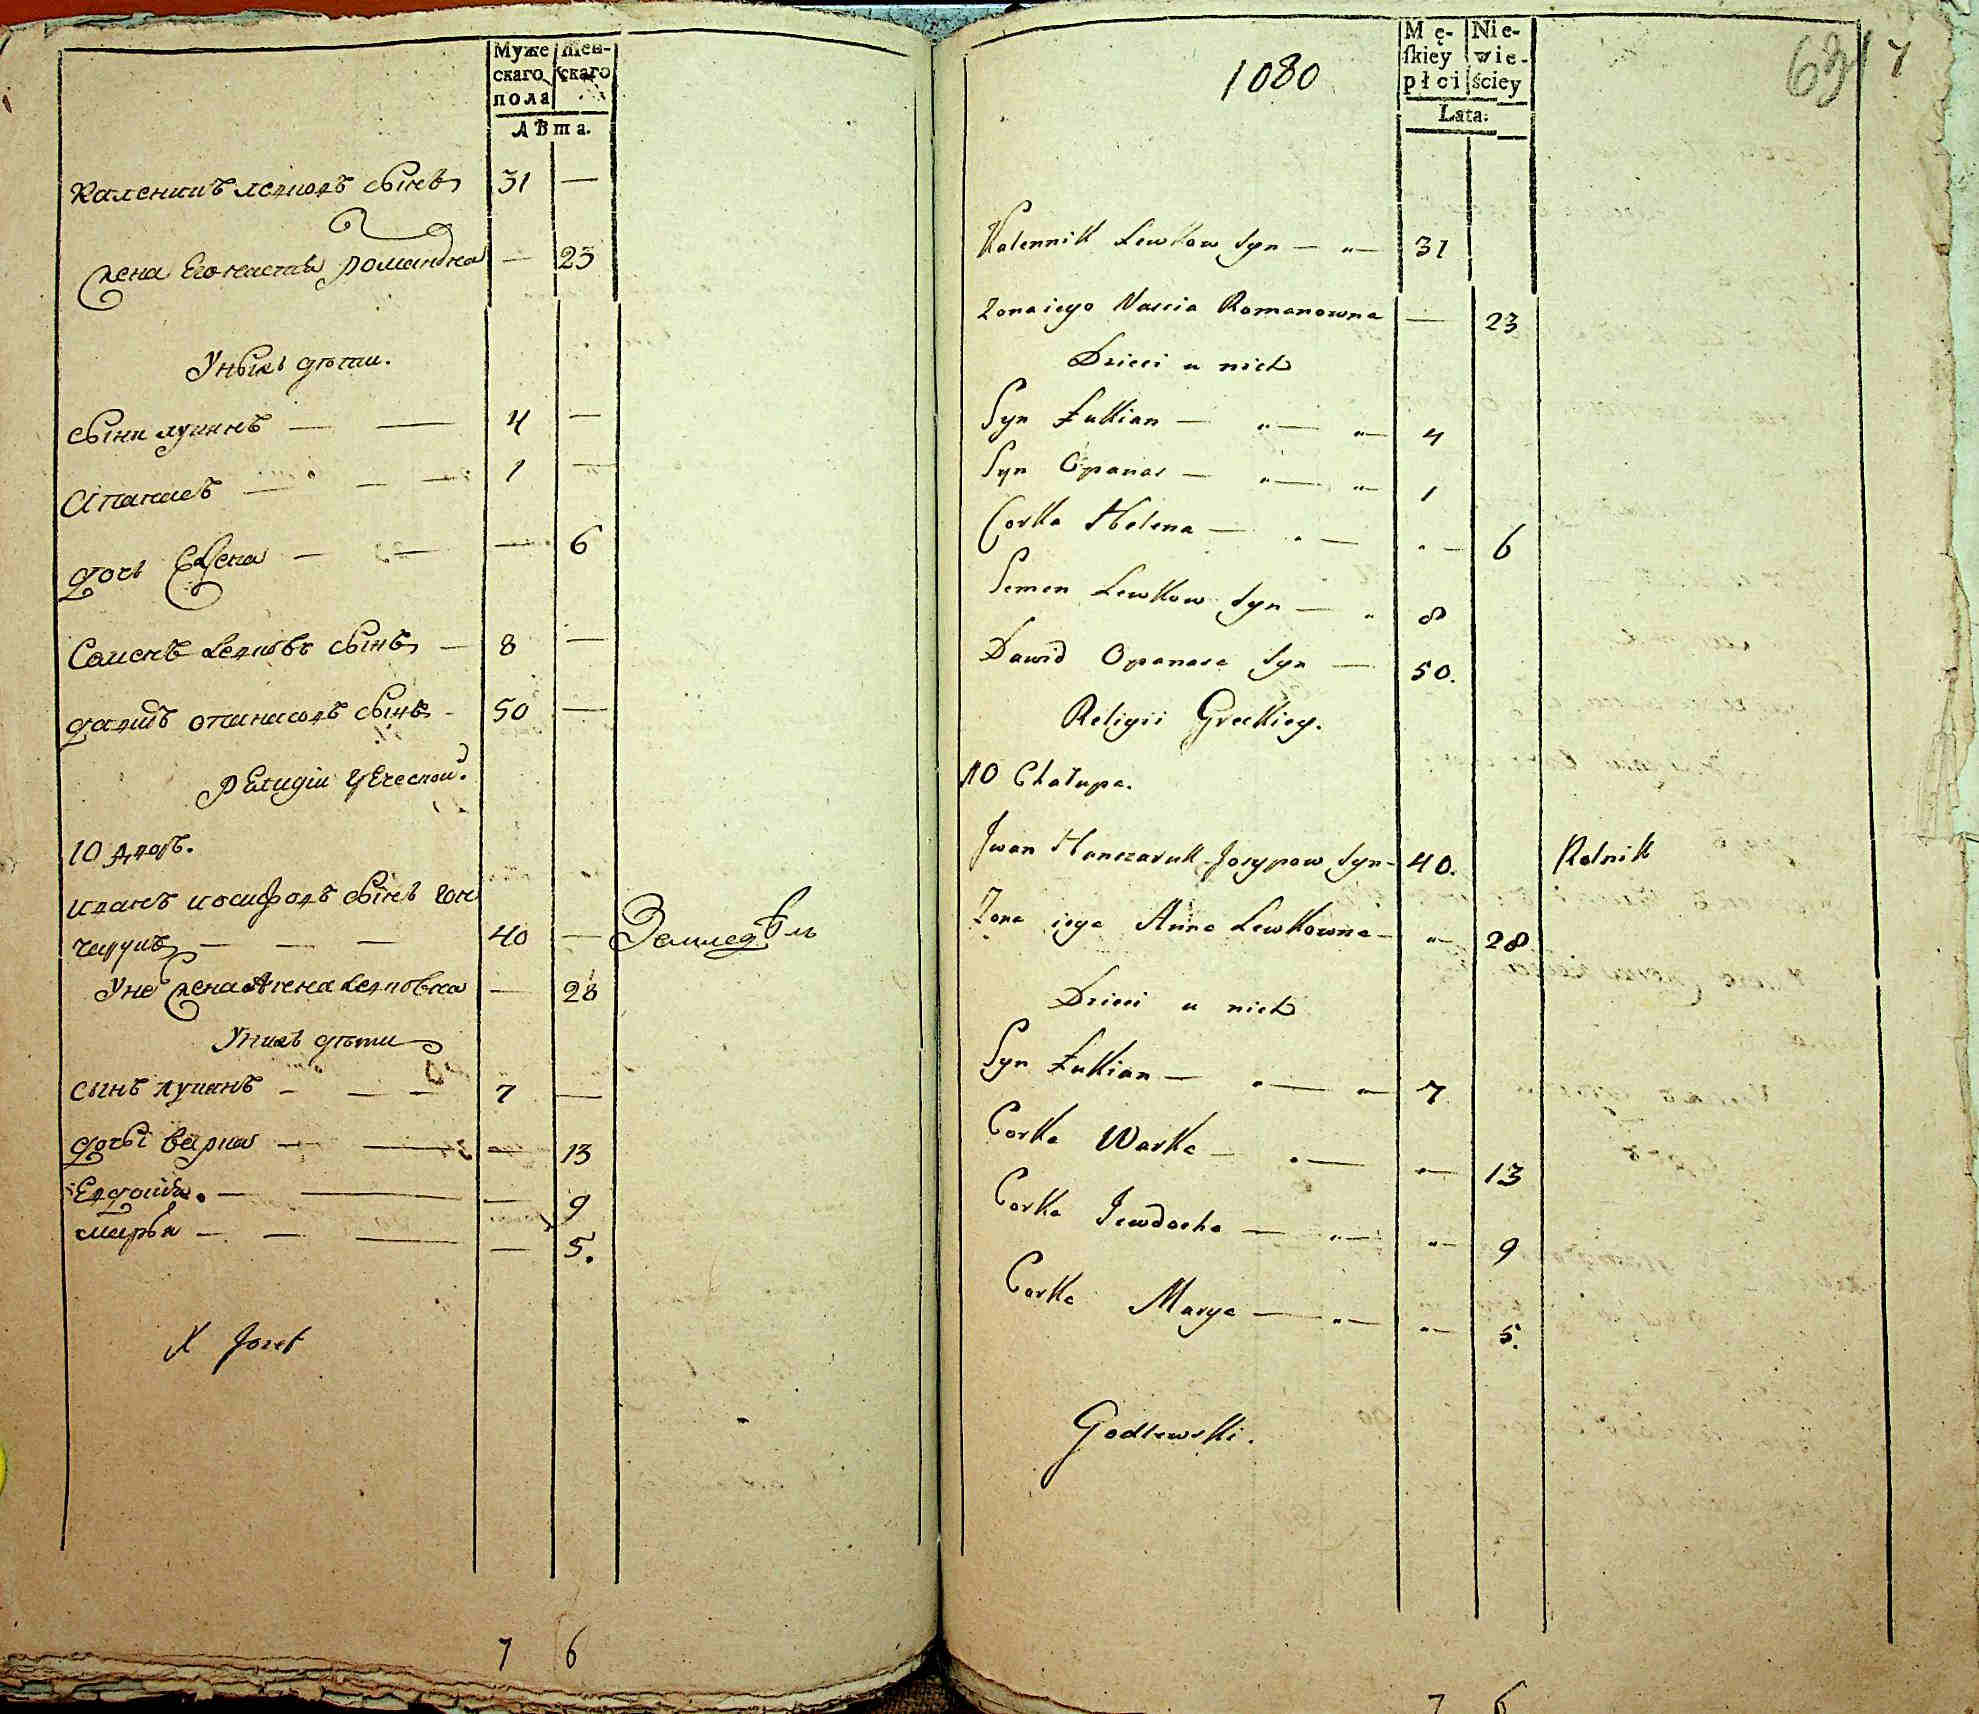 Муже
скаго
пола
Жен-
скаго
Лѣта.
Каленикъ левковъ сынъ 31 —
Жена Его настя романовна — 23
У ныхъ дѣти.
сынъ лукянъ — — 4 —
Апанасъ — — — 1 —
дочь Елена — — — 6
Семенъ левковъ сынъ — 8 —
давидъ опанасовъ сынъ 50 —
Религіи Греческой.
10 дворъ.
иванъ иосифовъ сынъ гон
чарукъ — — — 40 — Земледѣль
У не Жена Анна левковна — 28
У нихъ дѣти
сынъ лукянъ — — — 7 —
дочь варка — — — 13
Евдошка. — — — 9
марья — — — — 5.
X Jozef
7 6
1080
Mę-
ſkiey
płci
Nie-
wie-
ściey
Lata.
Kalennik Lewkow Syn — „ — 31
Zona iego Nascia Romanowna — 23
Dzieci u nich
Syn Łukian — „ — „ — 4
Syn Opanas — „ — „ — 1
Corka Helena — „ — „ — 6
Semen Lewkow Syn — „ 8
Dawid Opanasa Syn — 50.
Religii Greckiey.
10 Chałupa.
Jwan Hanczaruk Josypow Syn — 40. Rolnik
Zona iego Anna Lewkowna — „ — 28
Dzieci u nich
Syn Łukian — „ — „ — 7
Corka Warka — „ — „ — 13
Corka Jewdocha — „ — „ — 9
Corka Marya — „ — „ — 5.
Godlewski.
7 6